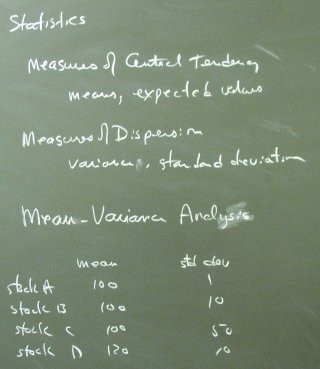 Statistics
Measures of Central Tendency
means, expected values
Measures of Dispersion
variance, standard deviation
Mean-Variance Analysis
mean std dev
stock A 100 1
stock B 100 10
stock C 100 50
stock D 120 10